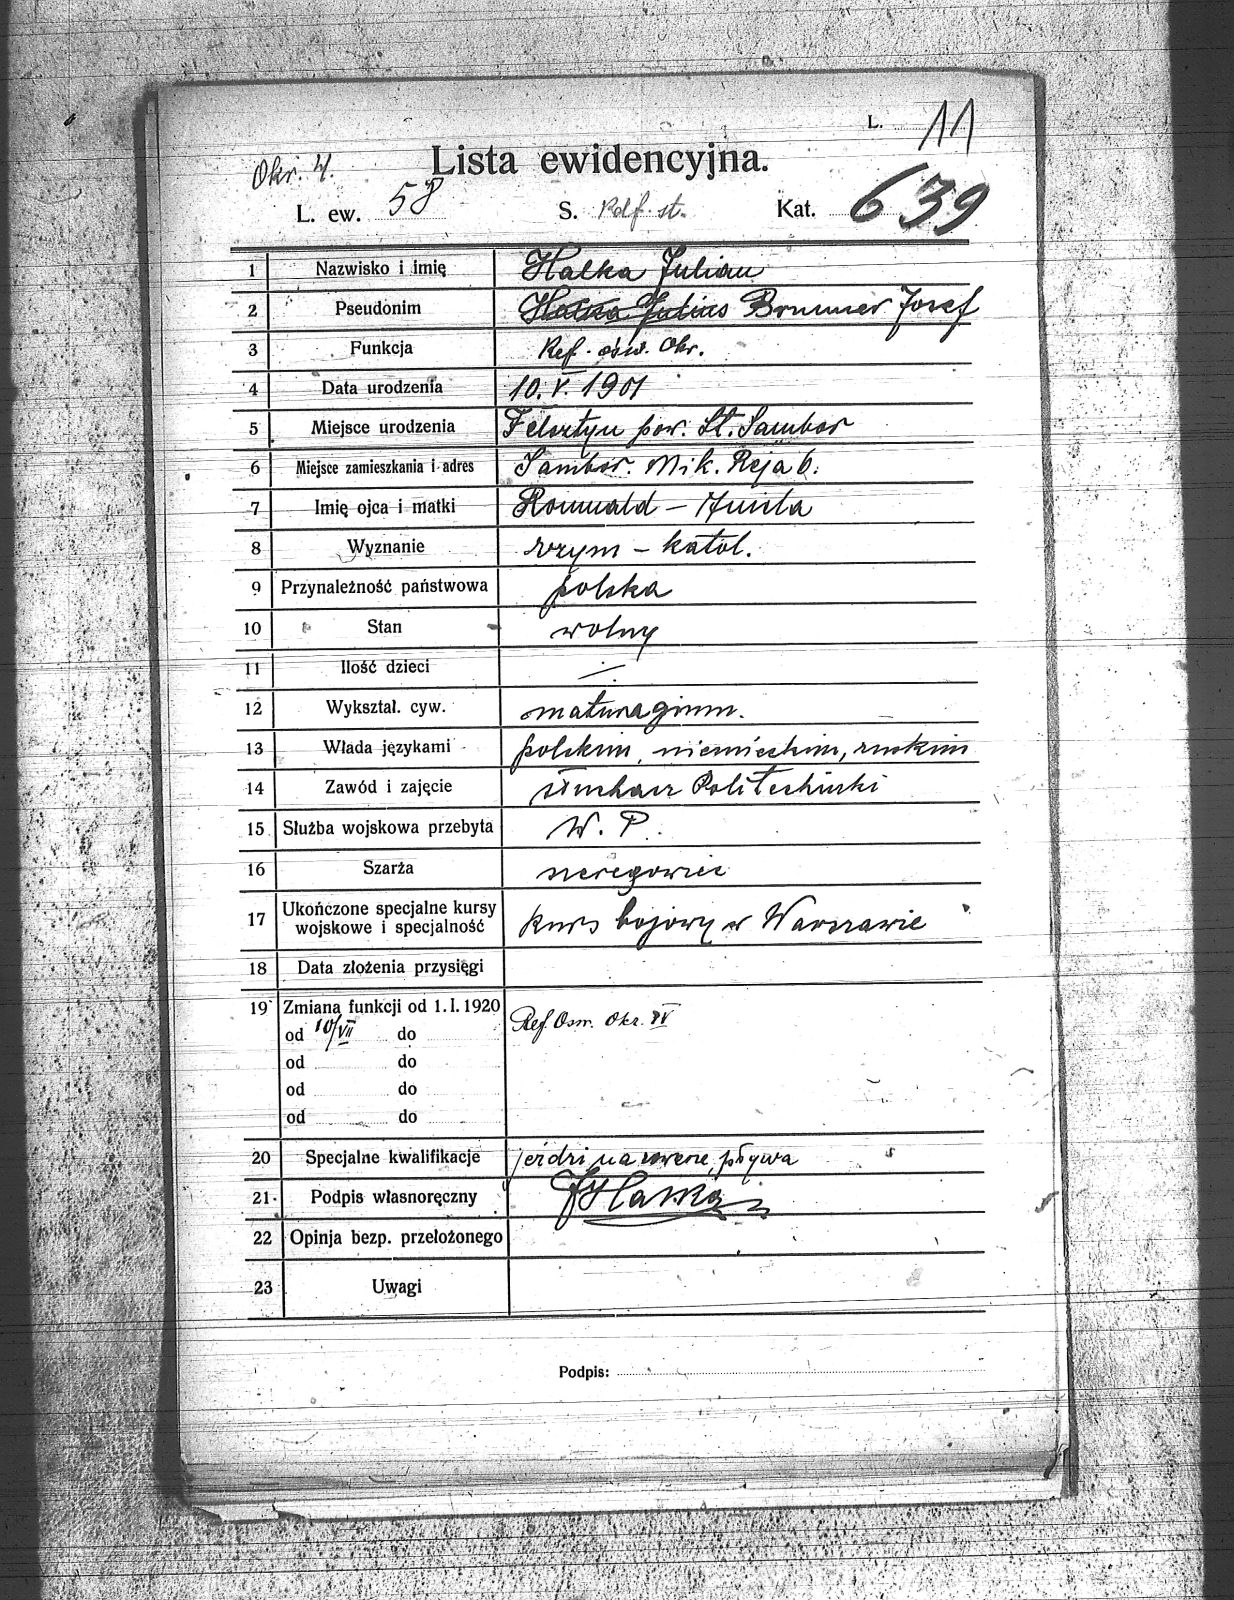 L. 11
Okr. 4.
Lista ewidencyjna.
L. ew. 58 S. Pdf. st. Kat. 639
1 Nazwisko i imię Halka Julian
2 Pseudonim Halka Julius Brunner Josef
3 Funkcja Ref. ośw. Okr.
4 Data urodzenia 10. V. 1901
5 Miejsce urodzenia Felsztyn pow. St. Sambor
6 Miejsce zamieszkania i adres Sambor. Mik. Reja 6.
7 Imię ojca i matki Romuald –
8 Wyznanie rzym – katol.
9 Przynależność państwowa polska
10 Stan wolny
11 Ilość dzieci —
12 Wykształ. cyw. matura gimn.
13 Włada językami polskim, niemieckim, ruskim
14 Zawód i zajęcie słuchacz Politechniki
15 Służba wojskowa przebyta W. P.
16 Szarża szeregowiec
17 Ukończone specjalne kursy
wojskowe i specjalność kurs bojowy w Warszawie
18 Data złożenia przysięgi
19 Zmiana funkcji od 1. I. 1920
od 10/VII do Ref. Osw. Okr. IV
od do
od do
od do
20 Specjalne kwalifikacje jeździ na rowerze, pływa
21 Podpis własnoręczny JHalka
22 Opinja bezp. przełożonego
23 Uwagi
Podpis: